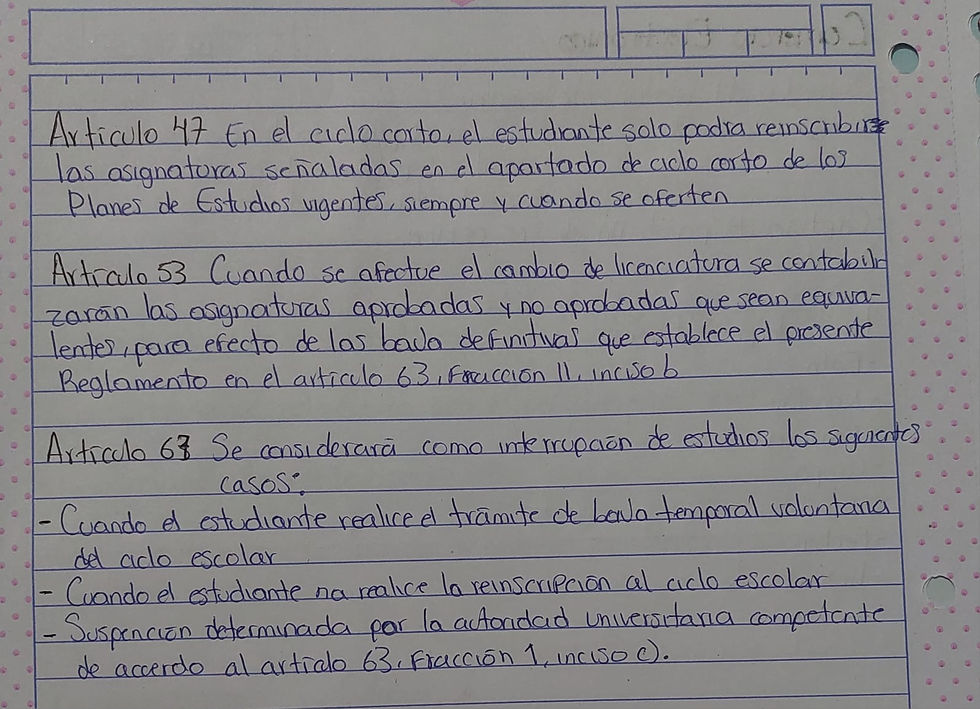 Artículo 47 En el ciclo corto, el estudiante solo podra reinscribirse
las asignaturas señaladas en el apartado de ciclo corto de los
Planes de Estudios vigentes, siempre y cuando se oferten
Artículo 53 Cuando se afectue el cambio de licenciatura se contabili
zarán las asignaturas aprobadas y no aprobadas que sean equiva-
lentes, para efecto de las baja definitivas que establece el presente
Reglamento en el artículo 63, Fracción II, inciso b
Artículo 63 Se considerará como interrupción de estudios los siguientes
casos:
- Cuando el estudiante realice el trámite de baja temporal voluntaria
del ciclo escolar
- Cuando el estudiante no realice la reinscripción al ciclo escolar
- Suspención determinada por la autoridad universitaria competente
de acuerdo al artículo 63, Fracción 1, inciso c).